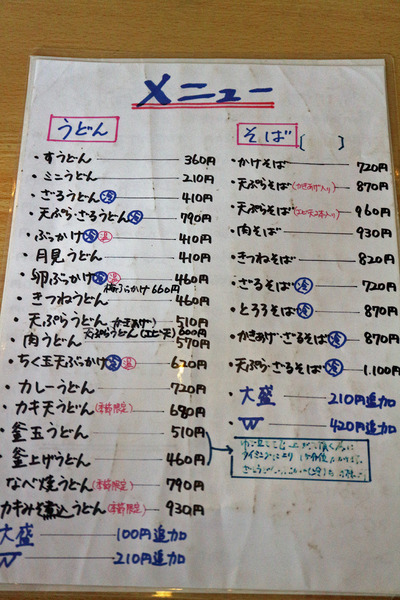 メニュー
うどん
・すうどん 360円
・ミニうどん 210円
・ざるうどん 冷 410円
・天ぷらざるうどん 冷 790円
・ぶっかけ 冷 温 410円
・月見うどん 410円
・卵ぶっかけ 冷 温 460円
梅ぶっかけ 660円
・きつねうどん 460円
・天ぷらうどん(かきあげ) 510円
天ぷらうどん(エビ天) 600円
・肉うどん 570円
・ちく玉天ぶっかけ 冷 温 620円
・カレーうどん 720円
・カキ天うどん(季節限定) 680円
・釜玉うどん 510円
・釜上げうどん 460円
なべ焼うどん(季節限定) 790円
カキみそ煮込うどん(季節限定) 930円
大盛 100円追加
W 210円追加
そば [ ]
・かけそば 720円
・天ぷらそば(かきあげ入り) 870円
・天ぷらそば(エビ天2本入り) 960円
・肉そば 930円
・きつねそば 820円
・ざるそば 冷 720円
・とろろそば 冷 870円
・かきあげ・ざるそば 冷 870円
・天ぷら・ざるそば 冷 1,100円
・大盛 210円追加
・W 420円追加